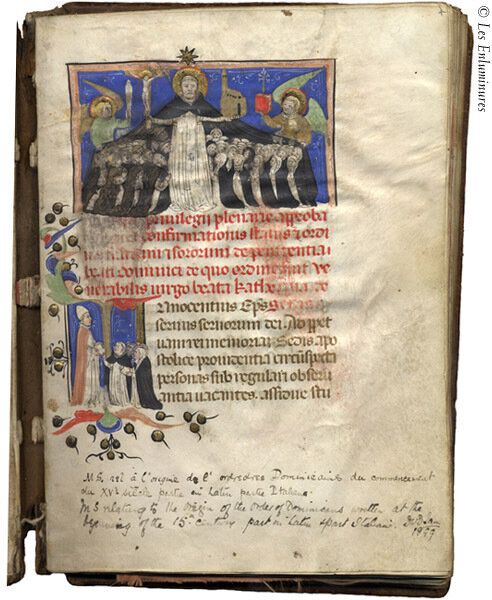 © Les Enluminures
privilegii plenarie approba
confirmationis status ordi
sororum de penitentia
beati dominici de quo ordine fuit ve
nerabilis virgo beata Kathe
nnocentius Eps
servus servorum dei. Ad ppet
uam rei memoriam Sedis apo
stolice providentia circūspecta
personas sub regulari observ
antia vacantes. assidue stu
MS. à l'origine de l' Dominicains du commencement
du XVe siècle partie en latin partie Italienne.
MS relating to the origin of the Order of Dominicans written at the
beginning of the 15th century part in Latin & part Italian.